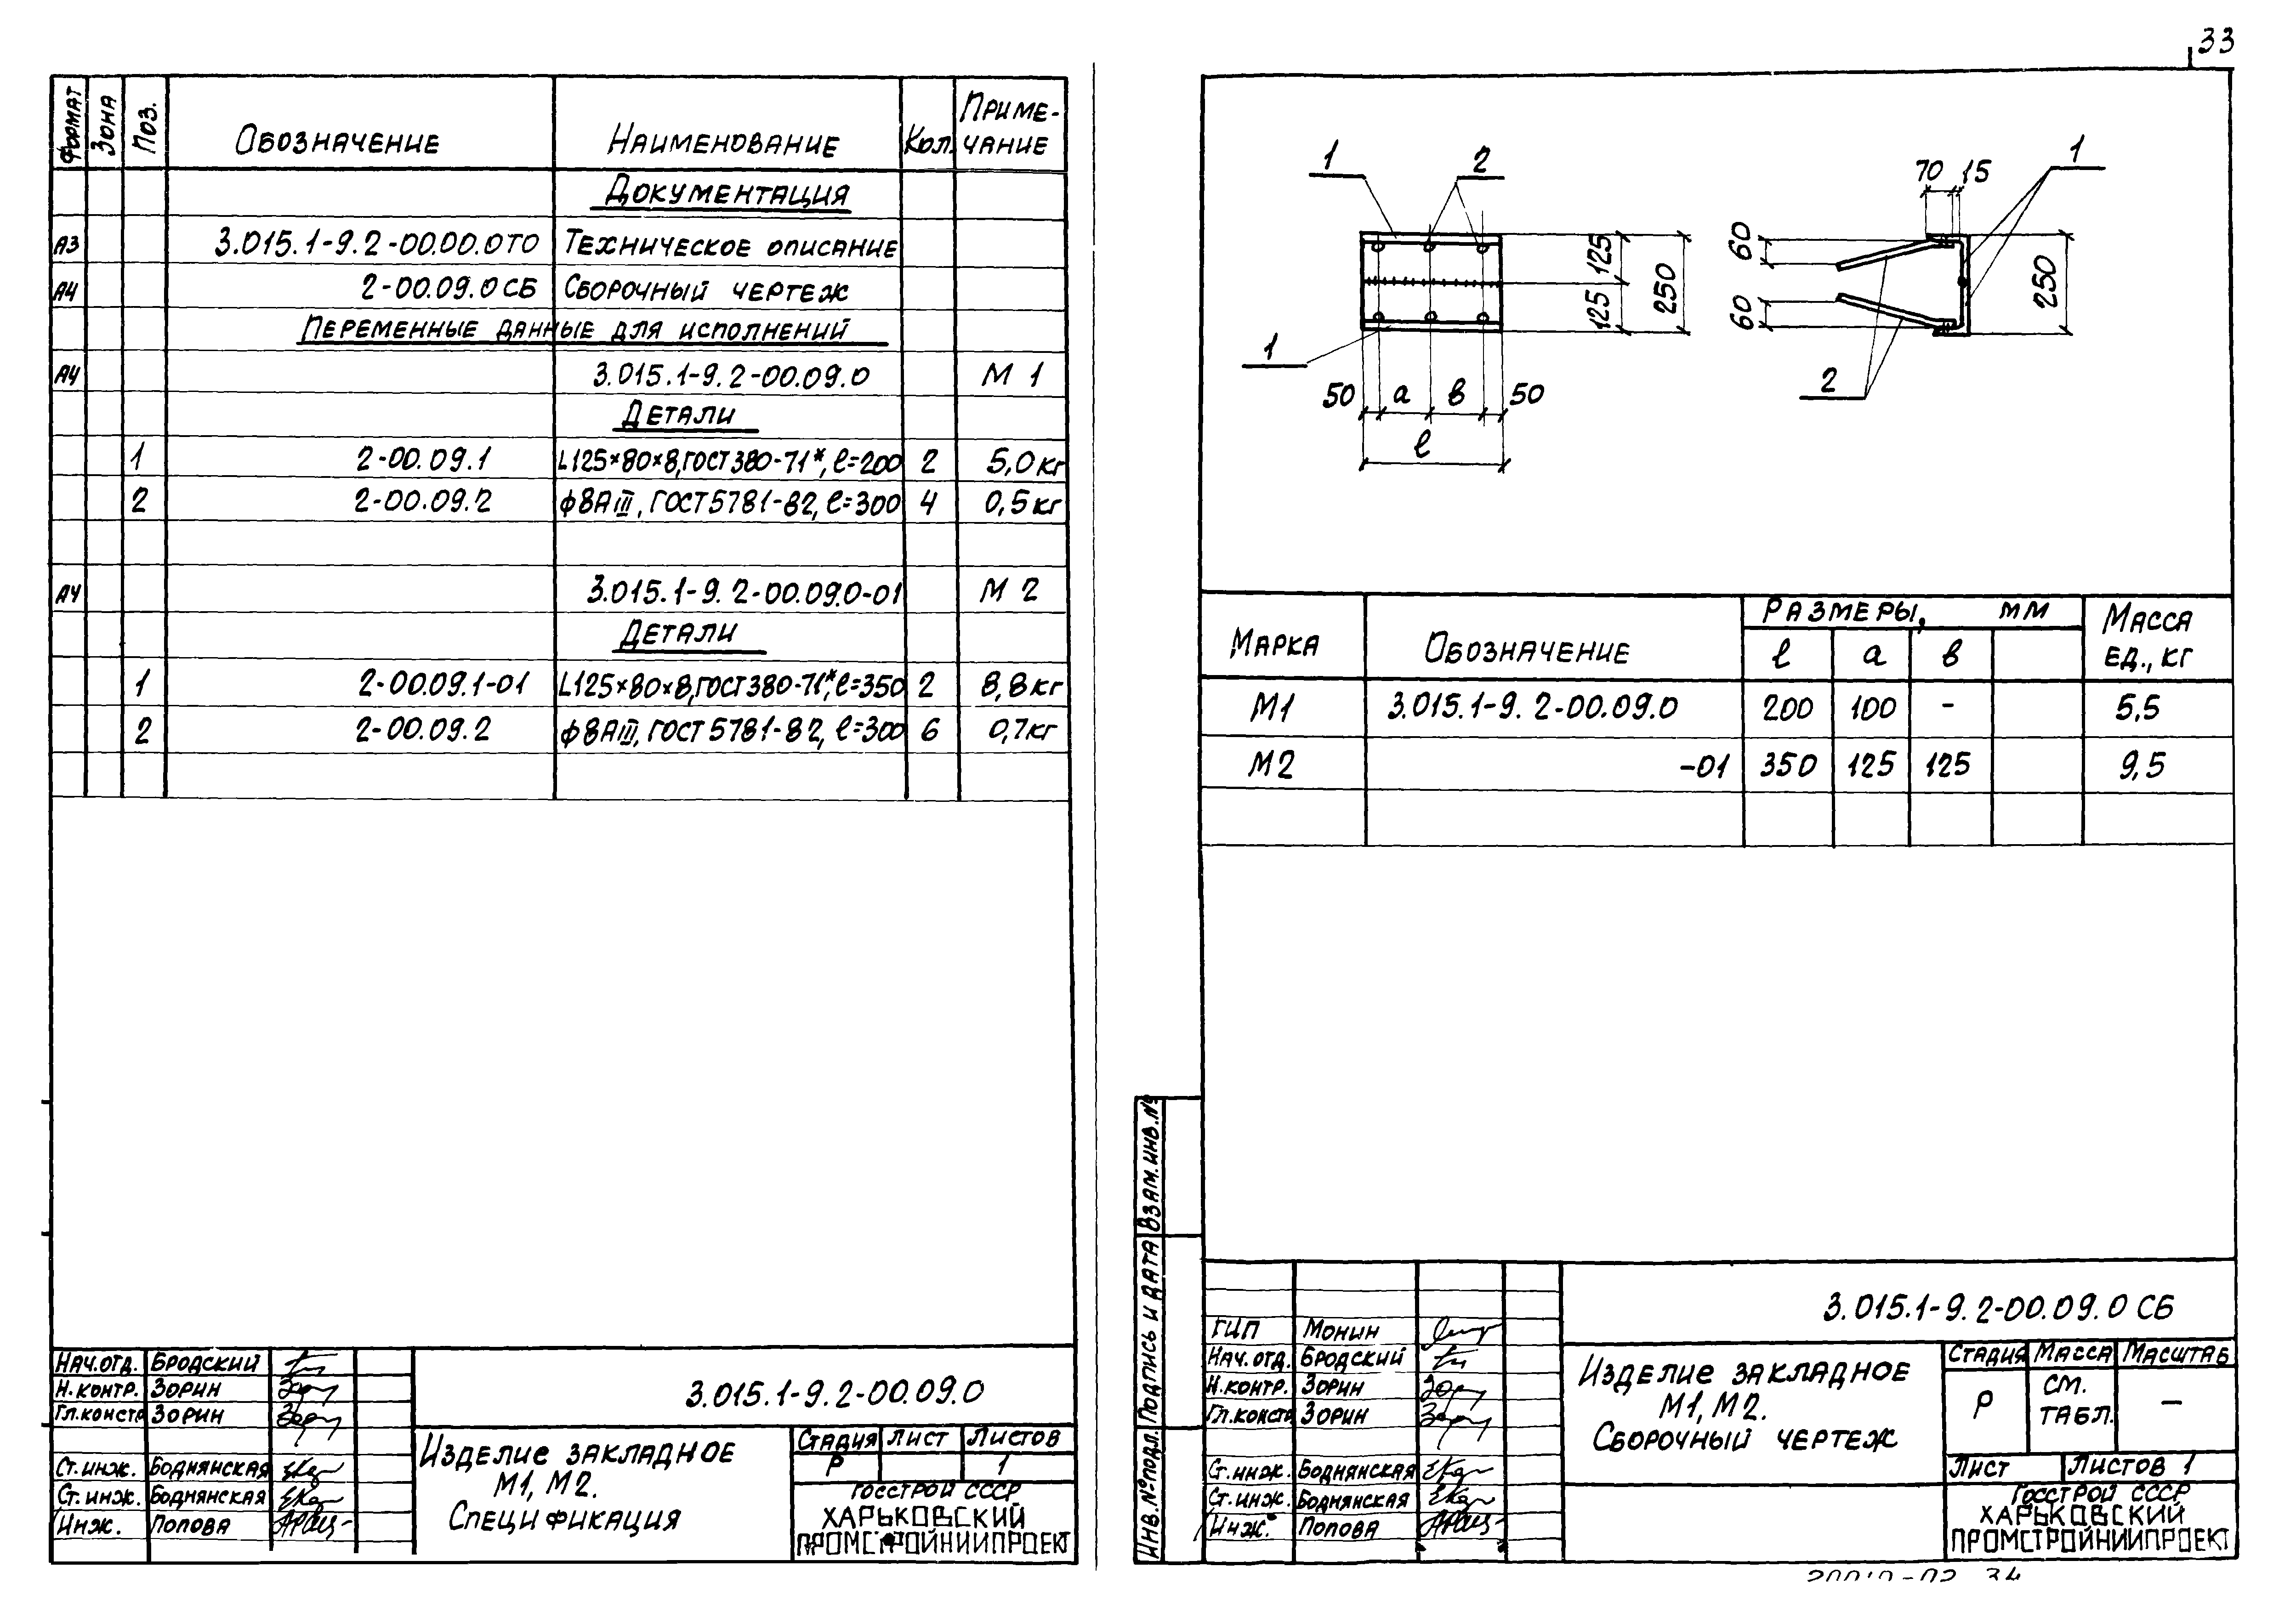 33
Формат Зона Поз. Обозначение Наименование Кол. Приме-
чание
Документация
А3 3.015.1-9.2-00.00.0ТО Техническое описание
А4 2-00.09.0 СБ Сборочный чертеж
Переменные данные для исполнений
А4 3.015.1-9.2-00.09.0 М 1
Детали
1 2-00.09.1 L125×80×8, ГОСТ 380-71*, ℓ=200 2 5,0 кг
2 2-00.09.2 ф8АIII, ГОСТ 5781-82, ℓ=300 4 0,5 кг
А4 3.015.1-9.2-00.09.0-01 М 2
Детали
1 2-00.09.1-01 L125×80×8, ГОСТ 380-71*, ℓ=350 2 8,8 кг
2 2-00.09.2 ф8АIII, ГОСТ 5781-82, ℓ=300 6 0,7 кг
Нач.отд. Бродский
Н.контр. Зорин
Гл.констр Зорин
Ст.инж. Боднянская
Ст.инж. Боднянская
Инж. Попова
3.015.1-9.2-00.09.0
Изделие закладное
М1, М2.
Спецификация
Стадия Лист Листов
Р 1
Госстрой СССР
ХАРЬКОВСКИЙ
ПРОМСТРОЙНИИПРОЕКТ
1 2
1
125
125
250
50 а в 50
ℓ
70 15
1
60
60
250
2
Марка Обозначение Размеры, мм Масса
ед., кг
ℓ а в
М1 3.015.1-9.2-00.09.0 200 100 - 5,5
М2 -01 350 125 125 9,5
Взам.инв.№
Подпись и дата
Инв.№ подл.
ГИП Монин
Нач.отд. Бродский
Н.контр. Зорин
Гл.констр Зорин
Ст.инж. Боднянская
Ст.инж. Боднянская
Инж. Попова
3.015.1-9.2-00.09.0 СБ
Изделие закладное
М1, М2.
Сборочный чертеж
Стадия Масса Масштаб
Р см.
табл. —
Лист Листов 1
Госстрой СССР
ХАРЬКОВСКИЙ
ПРОМСТРОЙНИИПРОЕКТ